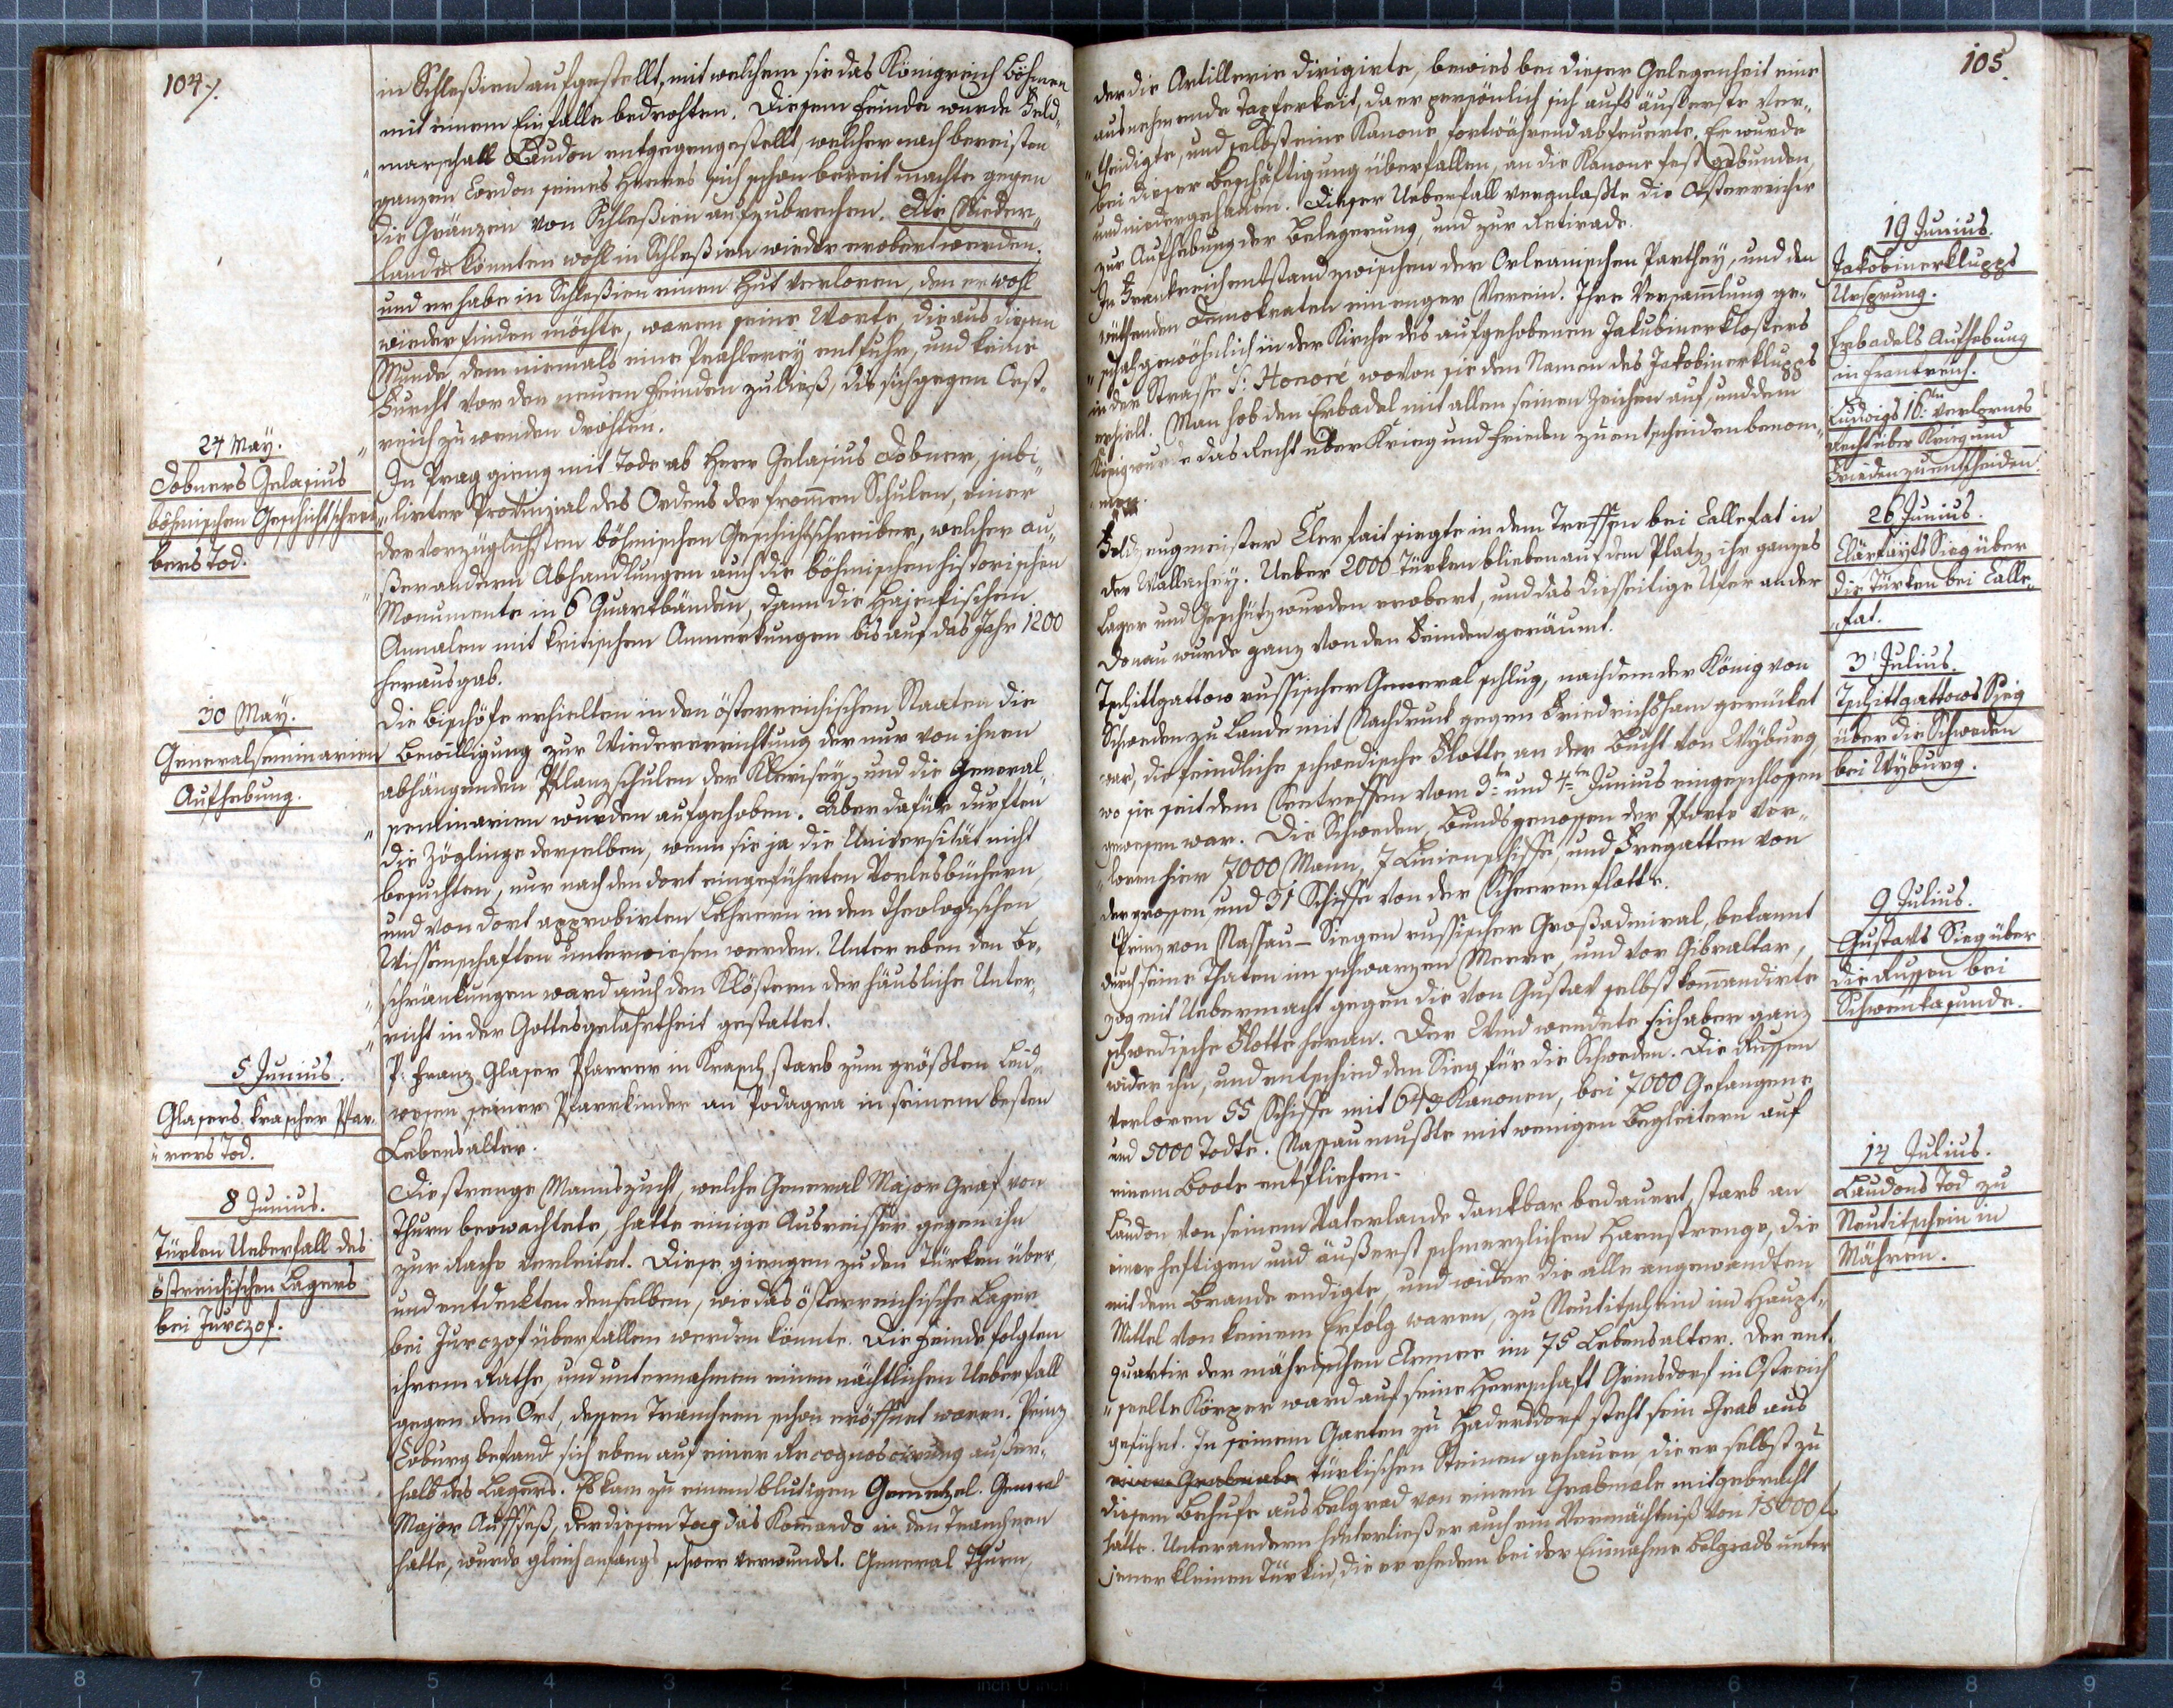 104/.
in Schlesien aufgestellt, mit welchem sie das Königreich Böhmen
mit einem Einfalle bedrohten. Diesem Feinde wurde Feld„
„marschall Laudon entgegengestellt, welcher nach bereisten
ganzen Cordon seines Heeres sich schon bereit machte gegen
die Gränzen von Schleßien aufzubrechen. Die Nieder„
lande könnten wohl in Schleßien wieder erobert werden.
und er habe in Schleßien einen Hut verloren, den er wohl
wieder finden möchte, waren seine Worte, die aus diesem
Munde, dem niemals eine Prahlerey entfuhr, und keine
Furcht vor den neuen Feinden zuließ, die sich gegen Oest„
„reich zu wenden drohten.
24 May.
Dobners Gelasius
böhmischen Geschichtschrei„
bers Tod.
In Prag gieng mit Tode ab Herr Gelasius Dobner, jubi„
„lirter Provinzial des Ordens der frommen Schulen, einer
der vorzüglichsten böhmischen Geschichtschreiber, welcher au„
„ßer andern Abhandlungen auch die böhmischen historischen
Monumente in 6 Quartbänden, dann die Hajekischen
Annalen mit kritischen Anmerkungen bis auf das Jahr 1200
herausgab.
30 May.
Generalseminarien
Aufhebung.
Die Bischöfe erhielten in den österreichischen Staaten die
Bewilligung zur Wiedererrichtung der nur von ihnen
abhängenden Pflanzschulen der Klerisey, und die General„
„seminarien wurden aufgehoben. Aber dafür durften
die Zöglinge derselben, wenn sie ja die Universität nicht
besuchten, nur nach den dort eingeführten Vorlesbüchern,
und von dort approbirten Lehrern in den theologischen
Wissenschaften unterwiesen werden. Unter eben den Be„
„schränkungen ward auch den Klöstern der häusliche Unter„
„richt in der Gottesgelahrtheit gestattet.
5 Junius.
Glasers Krascher Pfar„
„rers Tod.
P. Franz Glaser Pfarrer in Krasch starb zum größten Leid„
wesen seiner Pfarrkinder an Podagra in seinem besten
Lebensalter.
8 Junius.
Türken Ueberfall des
östreichischen Lagers
bei Jurczof.
Die strenge Mannszucht, welche General Major Graf von
Thurn beobachtete, hatte einige Ausreisser gegen ihn
zur Rache verleitet. Diese giengen zu den Türken über,
und entdeckten denselben, wie das österreichische Lager
bei Jurczof überfallen werden könnte. Die Feinde folgten
ihrem Rathe, und unternahmen einen nächtlichen Ueberfall
gegen den Ort, dessen Trancheen schon eröffnet waren. Prinz
Coburg befand sich eben auf einer Recognoscirung außer„
halb des Lagers. Es kam zu einem blutigen Gemetzel. General
Major Auffseß, der diesen Tag das Kommando in den Trancheen
hatte, wurde gleich anfangs schwer verwundet. General Thurn,
105.
der die Artillerie dirigirte, bewies bei dieser Gelegenheit eine
ausnehmende Tapferkeit, da er persönlich sich aufs äußerste ver„
„theidigte, und selbst eine Kanone fortwährend abfeuerte. Er wurde
bei dieser Beschäftigung überfallen, an die Kanone fest gebunden,
und niedergehauen. Dieser Ueberfall veranlaßte die Oesterreicher
zur Aufhebung der Belagerung, und zur Retirade.
19 Junius.
Jakobinerklupps
Ursprung.
Erbadels Aufhebung
in Frankreich.
Ludwigs 16ten verlornes
Recht über Krieg und
Frieden zu entscheiden.
In Frankreich entstand zwischen der Orleanischen Parthey, und den
wüthenden Demokraten ein enger Verein. Ihre Versammlung ge„
„schah gewöhnlich in der Kirche des aufgehobenen Jakobinerklosters
in der Strasse S: Honoré, wovon sie den Namen des Jakobinerklupps
erhielt. Man hob den Erbadel mit allen seinen Zeichen auf, und dem
König wurde das Recht über Krieg und Frieden zu entscheiden benom„
„men.
26 Junius.
Clärfayts Sieg über
die Türken bei Calle„
„fat.
Feldzeugmeister Clerfait siegte in dem Treffen bei Callefat in
der Wallachey. Ueber 2000 Türken blieben auf dem Platz, ihr ganzes
Lager und Geschütz wurden erobert, und das diesseitige Ufer an der
Donau wurde ganz von den Feinden geräumt.
3 Julius.
Tschittgattows Sieg
über die Schweden
bei Wyburg.
Tschittgattow russischer General schlug, nachdem der König von
Schweden zu Lande mit Nachdruck gegen Friedrichsham gerücket
war, die feindliche schwedische Flotte, an der Bucht von Wyburg,
wo sie seit dem Seetreffen vom 3ten und 4ten Junius eingeschlossen
gewesen war. Die Schweden, Bundsgenossen der Pforte ver„
„loren hier 7000 Mann, 7 Linienschiffe, und Fregatten von
der grossen, und 31 Schiffe von der Scheerenflotte.
9 Julius.
Gustavs Sieg über
die Russen bei
Schwenkasunde.
Prinz von Nassau-Siegen russischer Großadmiral, bekannt
durch seine Thaten im schwarzen Meere, und vor Gibraltar,
zog mit Uebermacht gegen die von Gustav selbst kommandirte
schwedische Flotte heran. Der Wind wendete sich aber ganz
wider ihn, und entschied den Sieg für die Schweden. Die Russen
verloren 55 Schiffe mit 643 Kanonen, bei 7000 Gefangene
und 5000 Todte. Nassau mußte mit wenigen Begleitern auf
einem Boote entfliehen.
14 Julius.
Laudons Tod zu
Neutitschein in
Mähren.
Laudon von seinem Vaterlande dankbar bedauert, starb an
einer heftigen und äußerst schmerzlichen Harnstrenge, die
mit dem Brande endigte, und wider die alle angewandten
Mittel von keinem Erfolg waren, zu Neutitschein im Haupt„
quartir der mährischen Armee im 75 Lebensalter. Der ent„
„seelte Körper ward auf seine Herrschaft Grinsdorf in Ostreich
geführt. In seinem Garten zu Hadersdorf steht sein Grab aus
einem Grabmale türkischen Steinen gehauen, die er selbst zu
diesem Behufe aus Belgrad von einem Grabmale mitgebracht
hatte. Unter andern hinterließ er auch ein Vermächtniß von 15000 f.
jener kleinen Türkin, die er ehedem bei der Einnahme Belgrads unter
8 7 6 5 4 3 2 1 inch 1 2 3 4 5 6 7 8 9